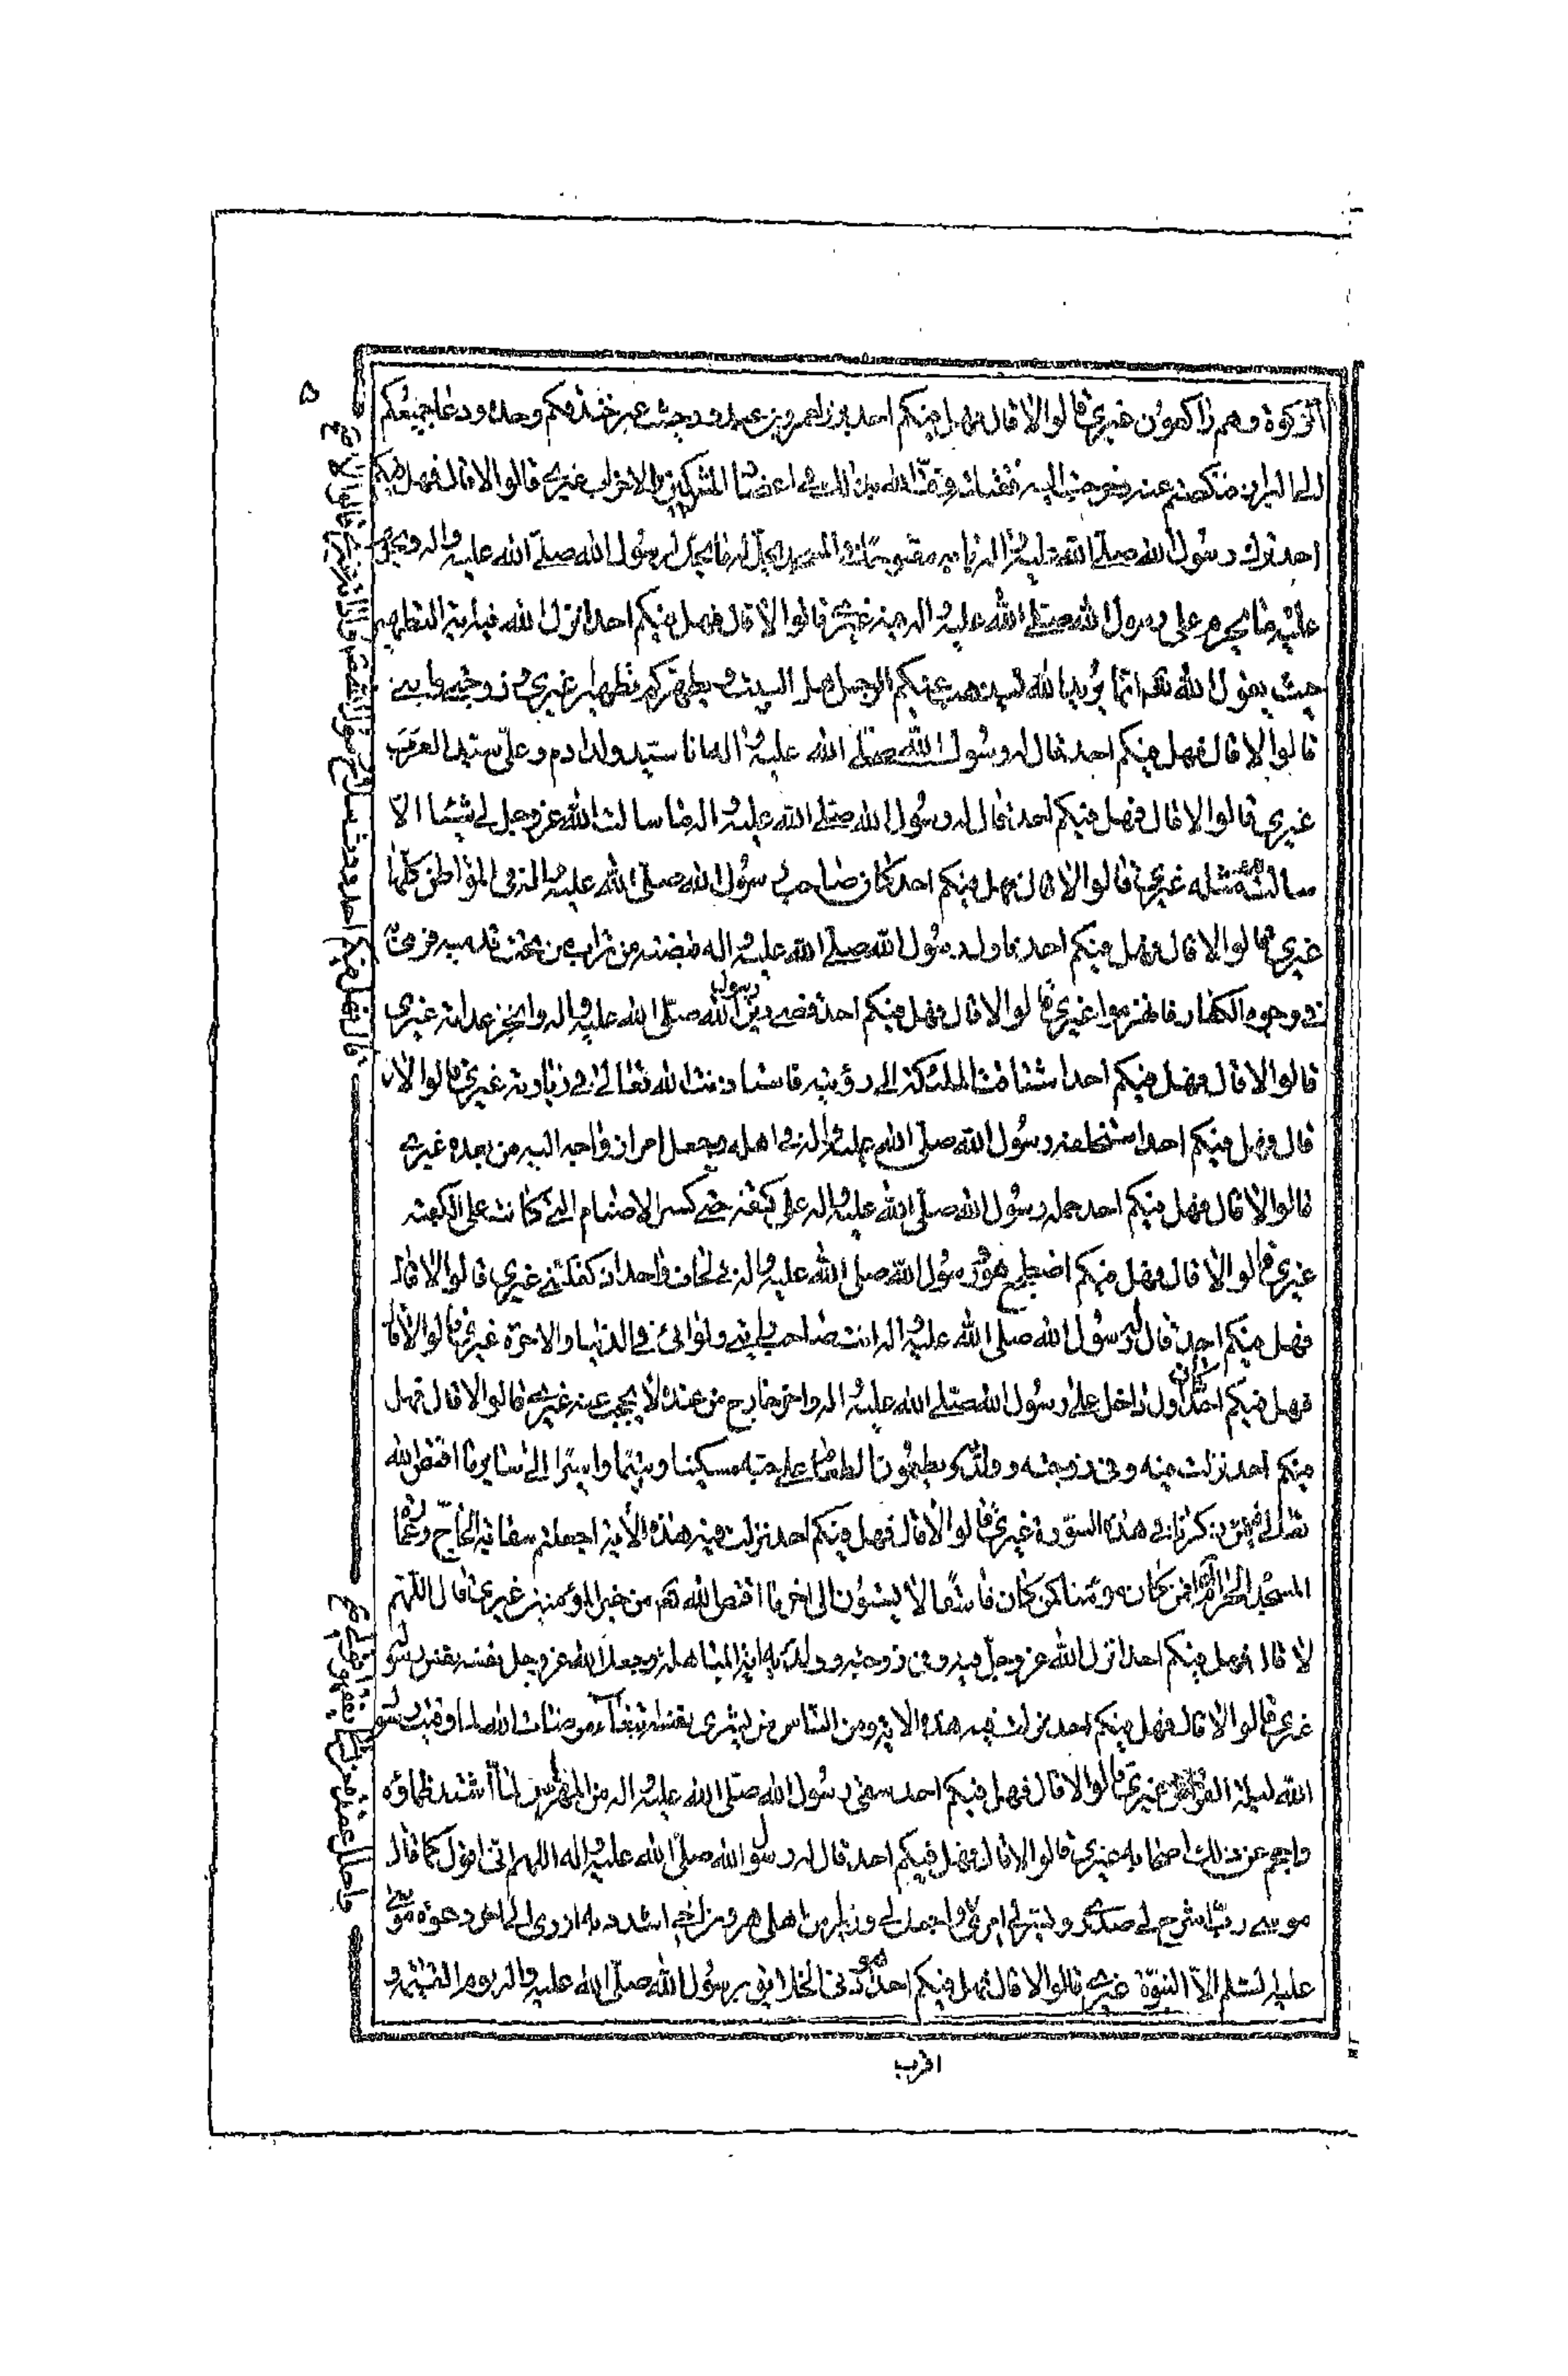 الزكوة وهم راكعون غيري قالوا لا قال فهل فيكم احد برز لعمرو بن عبد ود حيث عبر خندقكم وحده ودعا جميعكم
الى البراز فنكصتم عنه وخرجت اليه فقتلته وفتّ الله بذلك في اعضاد المشركين والاحزاب غيري قالوا لا قال فهل فيكم
احد ترك رسول الله صلى الله عليه واله بابه مفتوحا في المسجد يحل له ما يحل لرسول الله صلى الله عليه واله ويحرم
عليه ما يحرم على رسول الله صلى الله عليه واله فيه غيري قالوا لا قال فهل فيكم احد انزل الله فيه اية التطهير
حيث يقول الله تعالى انما يريد الله ليذهب عنكم الرجس اهل البيت ويطهركم تطهيرا غيري و زوجتي وابني
قالوا لا قال فهل فيكم احد قال له رسول الله صلى الله عليه واله انا سيد ولد ادم وعلي سيد العرب
غيري قالوا لا قال فهل فيكم احد قال له رسول الله صلى الله عليه واله ما سالت الله عز وجل لي شيئا الا
سالت لك مثله غيري قالوا لا قال فهل فيكم احد كان صاحب رسول الله صلى الله عليه واله في المواطن كلها
غيري قالوا لا قال فهل فيكم احد ناول رسول الله صلى الله عليه واله قبضة من تراب من تحت قدميه فرمى به
في وجوه الكفار فانهزموا غيري قالوا لا قال فهل فيكم احد قضى دين رسول الله صلى الله عليه واله وانجز عداته غيري
قالوا لا قال فهل فيكم احد اشتاقت الملئكة الى رؤيته فاستاذنت الله تعالى في زيارته غيري قالوا لا
قال فهل فيكم احد استخلفه رسول الله صلى الله عليه واله في اهله وجعل امر ازواجه اليه من بعده غيري
قالوا لا قال فهل فيكم احد حمله رسول الله صلى الله عليه واله على كتفه حتى كسر الاصنام التي كانت على الكعبة
غيري قالوا لا قال فهل فيكم اضطجع هو ورسول الله صلى الله عليه واله في لحاف واحد اذ كفلني غيري قالوا لا قال
فهل فيكم احد قال له رسول الله صلى الله عليه واله انت صاحب رايتي ولوائي في الدنيا والاخرة غيري قالوا لا قال
فهل فيكم احد كان اول داخل على رسول الله صلى الله عليه واله واخر خارج من عنده لا يحجب عنه غيري قالوا لا قال فهل
فيكم احد نزلت فيه وفي زوجته وولديه ويطعمون الطعام على حبه مسكينا ويتيما واسيرا الى سائر ما اقتص الله
تعالى فيه من ذكرنا في هذه السورة غيري قالوا لا قال فهل فيكم احد نزلت فيه هذه الاية اجعلتم سقاية الحاج وعمارة
المسجد الحرام افمن كان مؤمنا كمن كان فاسقا لا يستون الى اخر ما اقتص الله تعالى من خبر المؤمنين غيري قال اللهم
لا قال فهل فيكم احد انزل الله عز وجل فيه وفي زوجته وولديه اية المباهلة وجعل الله عز وجل نفسه نفس رسوله
غيري قالوا لا قال فهل فيكم احد نزلت فيه هذه الاية ومن الناس من يشري نفسه ابتغاء مرضات الله لما وقيت رسول
الله ليلة الفراش غيري قالوا لا قال فهل فيكم احد سقى رسول الله صلى الله عليه واله من المهراس لما اشتد ظماؤه
واحجم عن ذلك اصحابه غيري قالوا لا قال فهل فيكم احد قال له رسول الله صلى الله عليه واله اللهم اني اقول كما قال
موسى رب اشرح لي صدري ويسر لي امري واجعل لي وزيرا من اهلي هرون اخي اشدد به ازري الى اخر دعوة موسى
عليه السلم الا النبوة غيري قالوا لا قال فهل فيكم احد هو ادنى الخلايق برسول الله صلى الله عليه واله يوم القيمة و
اقرب